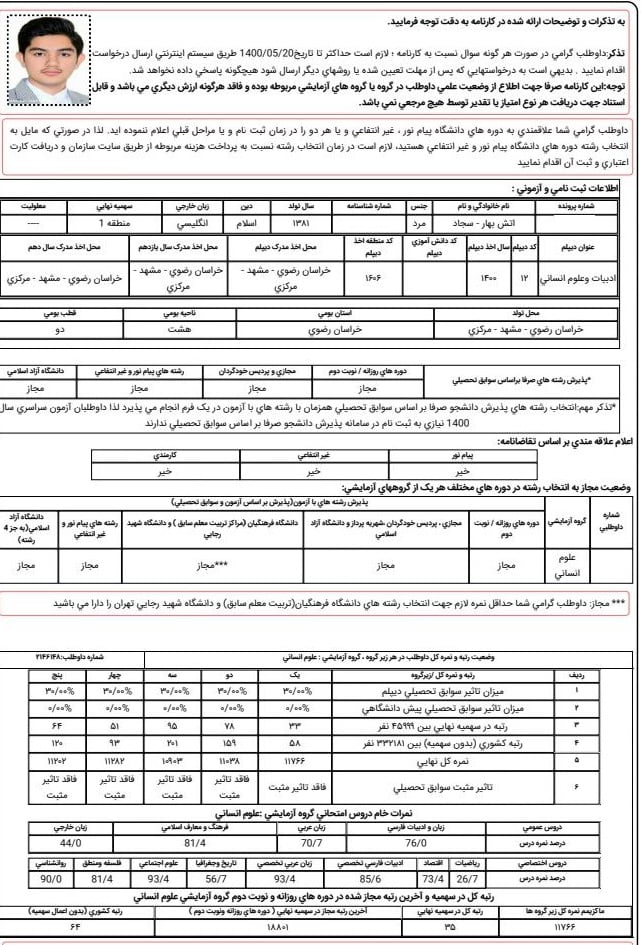 به تذکرات و توضیحات ارائه شده در کارنامه به دقت توجه فرمایید.
تذکر:داوطلب گرامي در صورت هر گونه سوال نسبت به کارنامه ؛ لازم است حداکثر تا تاریخ1400/05/20 طریق سیستم اینترنتي ارسال درخواست،
اقدام نمایید . بدیهي است به درخواستهایي که پس از مهلت تعیین شده یا روشهاي دیگر ارسال شود هیچگونه پاسخي داده نخواهد شد.
توجه:این کارنامه صرفا جهت اطلاع از وضعیت علمي داوطلب در گروه یا گروه هاي آزمایشي مربوطه بوده و فاقد هرگونه ارزش دیگري مي باشد و قابل
استناد جهت دریافت هر نوع امتیاز یا تقدیر توسط هیچ مرجعي نمي باشد.
داوطلب گرامي شما علاقمندي به دوره هاي دانشگاه پیام نور ، غیر انتفاعي و یا هر دو را در زمان ثبت نام و یا مراحل قبلي اعلام ننموده اید. لذا در صورتي که مایل به
انتخاب رشته دوره هاي دانشگاه پیام نور و غیر انتفاعي هستید، لازم است در زمان انتخاب رشته نسبت به پرداخت هزینه مربوطه از طریق سایت سازمان و دریافت کارت
اعتباري و ثبت آن اقدام نمایید
اطلاعات ثبت نامي و آزموني :
شماره پرونده نام خانوادگي و نام جنس شماره شناسنامه سال تولد دین زبان خارجي سهمیه نهایي معلولیت
اتش بهار - سجاد مرد ۱۳۸۱ اسلام انگلیسي منطقه 1 ----
عنوان دیپلم کد دیپلم سال اخذ دیپلم کد دانش آموزي دیپلم کد منطقه اخذ دیپلم محل اخذ مدرک دیپلم محل اخذ مدرک سال یازدهم محل اخذ مدرک سال دهم
ادبیات وعلوم انساني ۱۲ ۱۴۰۰ ۱۶۰۶ خراسان رضوي - مشهد - مرکزي خراسان رضوي - مشهد - مرکزي خراسان رضوي - مشهد - مرکزي
محل تولد استان بومي ناحیه بومي قطب بومي
خراسان رضوي - مشهد - مرکزي خراسان رضوي هشت دو
*پذیرش رشته هاي صرفا براساس سوابق تحصیلي دوره هاي روزانه / نوبت دوم مجازي و پردیس خودگردان رشته هاي پیام نور و غیر انتفاعي دانشگاه آزاد اسلامي
مجاز مجاز مجاز مجاز
*تذکر مهم:انتخاب رشته هاي پذیرش دانشجو صرفا بر اساس سوابق تحصیلي همزمان با رشته هاي با آزمون در یک فرم انجام مي پذیرد لذا داوطلبان آزمون سراسري سال
1400 نیازي به ثبت نام در سامانه پذیرش دانشجو صرفا بر اساس سوابق تحصیلي ندارند
اعلام علاقه مندي بر اساس تقاضانامه:
پیام نور غیر انتفاعي کارمندي
خیر خیر خیر
وضعیت مجاز به انتخاب رشته در دوره هاي مختلف هر یک از گروههاي آزمایشي:
شماره داوطلبي گروه آزمایشي پذیرش رشته هاي با آزمون(پذیرش بر اساس آزمون و سوابق تحصیلي)
دوره هاي روزانه / نوبت دوم مجازي ، پردیس خودگردان ،شهریه پرداز و دانشگاه آزاد اسلامي دانشگاه فرهنگیان (مراکز تربیت معلم سابق ) و دانشگاه شهید رجایي رشته هاي پیام نور و غیر انتفاعي دانشگاه آزاد اسلامي(به جز 4 رشته)
علوم انساني مجاز مجاز ***مجاز مجاز مجاز
*** مجاز: داوطلب گرامي شما حداقل نمره لازم جهت انتخاب رشته هاي دانشگاه فرهنگیان(تربیت معلم سابق) و دانشگاه شهید رجایي تهران را دارا مي باشید
وضعیت رتبه و نمره کل داوطلب در هر زیر گروه ، گروه آزمایشي : علوم انساني شماره داوطلب:۲۱۴۶۱۴۸
ردیف رتبه و نمره کل /زیرگروه یک دو سه چهار پنج
۱ میزان تاثیر سوابق تحصیلي دیپلم ۳۰/۰۰% ۳۰/۰۰% ۳۰/۰۰% ۳۰/۰۰% ۳۰/۰۰%
۲ میزان تاثیر سوابق تحصیلي پیش دانشگاهي ۰/۰۰% ۰/۰۰% ۰/۰۰% ۰/۰۰% ۰/۰۰%
۳ رتبه در سهمیه نهایي بین ۴۵۹۹۹ نفر ۳۳ ۷۸ ۹۵ ۵۱ ۶۴
۴ رتبه کشوري (بدون سهمیه) بین ۳۳۲۱۸۱ نفر ۵۸ ۱۵۹ ۲۰۱ ۹۳ ۱۲۰
۵ نمره کل نهایي ۱۱۷۶۶ ۱۱۰۳۸ ۱۰۹۰۳ ۱۱۲۸۲ ۱۱۲۰۲
۶ تاثیر مثبت سوابق تحصیلي فاقد تاثیر مثبت فاقد تاثیر مثبت فاقد تاثیر مثبت فاقد تاثیر مثبت فاقد تاثیر مثبت
نمرات خام دروس امتحاني گروه آزمایشي :علوم انساني
دروس عمومي زبان و ادبیات فارسي زبان عربي فرهنگ و معارف اسلامي زبان خارجي
درصد نمره درس 76/0 70/7 81/4 44/0
دروس اختصاصي ریاضیات اقتصاد ادبیات فارسي تخصصي زبان عربي تخصصي تاریخ وجغرافیا علوم اجتماعي فلسفه ومنطق روانشناسي
درصد نمره درس 26/7 73/4 85/6 93/4 56/7 93/4 81/4 90/0
رتبه کل در سهمیه و آخرین رتبه مجاز شده در دوره هاي روزانه و نوبت دوم گروه آزمایشي علوم انساني
ماکزیمم نمره کل زیر گروه ها رتبه کل در سهمیه نهایي آخرین رتبه مجاز در سهمیه نهایي ( دوره هاي روزانه ونوبت دوم ) رتبه کشوري (بدون اعمال سهمیه)
۱۱۷۶۶ ۳۵ ۱۸۸۰۱ ۶۴